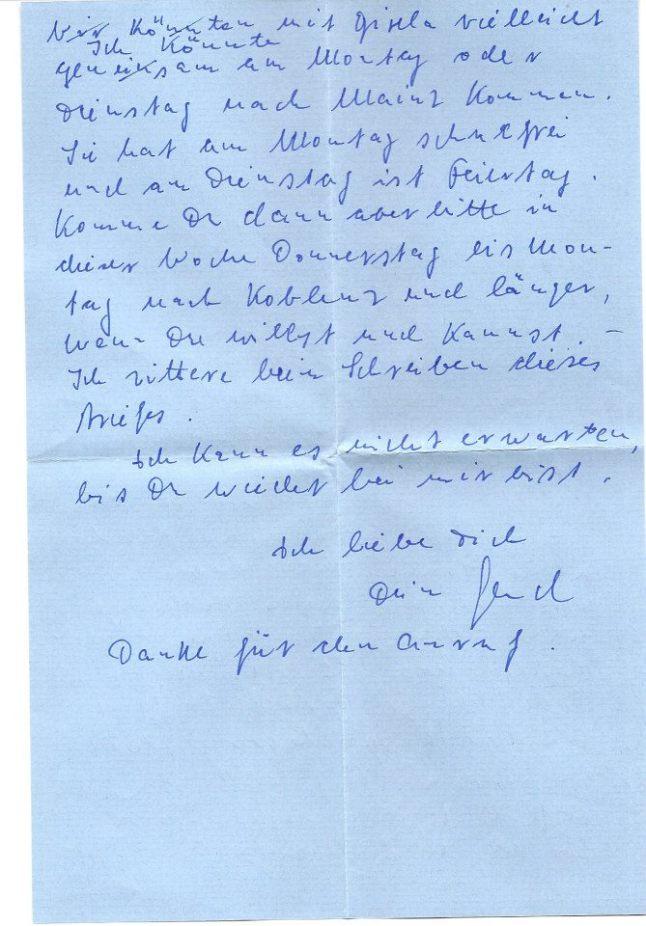 Wir könnten mit Gisela vielleicht
Ich könnte
gemeinsam am Montag oder
Dienstag nach Mainz kommen.
Sie hat am Montag schulfrei
und am Dienstag ist Feiertag.
Komme Du dann aber bitte in
dieser Woche Donnerstag bis Mon-
tag nach Koblenz und länger,
wenn Du willst und kannst. –
Ich zittere beim Schreiben dieses
Briefes.
Ich kann es nicht erwarten,
bis Du wieder bei mir bist.
Ich liebe Dich
Dein
Danke für den Anruf.